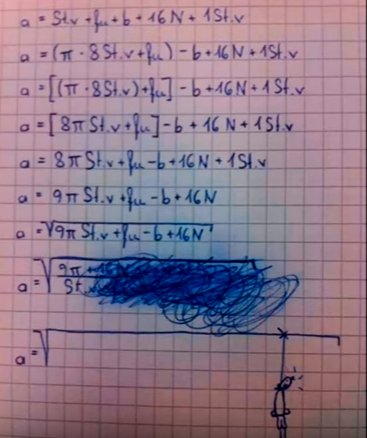 a = St.v + fu + b + 16N + 1St.v
a = (π · 8St.v + fu) - b + 16N + 1St.v
a = [(π · 8St.v) + fu] - b + 16N + 1St.v
a = [8πSt.v + fu] - b + 16N + 1St.v
a = 8πSt.v + fu - b + 16N + 1St.v
a = 9πSt.v + fu - b + 16N
a = √9πSt.v + fu - b + 16N
a = √9π
St.
a = √